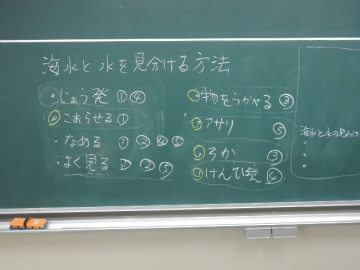 海水と水を見分ける方法
・じょう発 ① ④
・こおらせる ①
・なめる ① ② ④ ④
・よく見る ① ② ⑤
・物をうかべる ③
・アサリ ⑤
・ろか ③
・けんび境 ④
海水と水の見分け